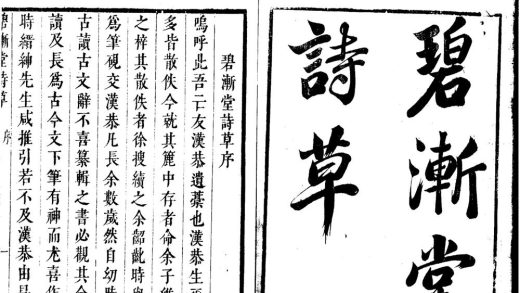 碧漸堂
詩草
碧漸堂詩草序
嗚呼此吾亡友漢恭遺藁也漢恭生
多皆散佚今就其篋中存者命余子
之梓其散佚者徐搜續之余齠齔時與
爲筆硯交漢恭凡長余數歲然自幼時
古讀古文辭不喜纂輯之書必觀其全
讀及長爲古今文下筆有神而尤喜作
時縉紳先生咸推引若不及漢恭由是
碧漸堂詩草 序 一